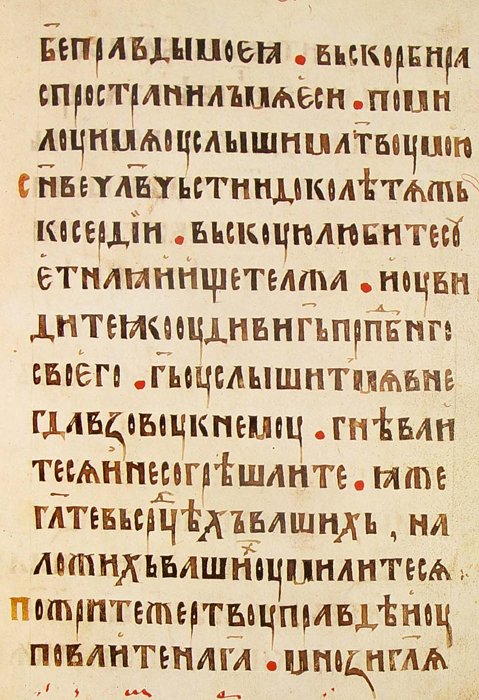 б҃е правды моеꙗ . въскорби ра
спространилъ мѧ еси . поми
лоуи мѧ оуслыши мл҃твоу мою
сн҃ве чл҃вчьстии доколѣ тѧмь
косердїи . въскоую любите соу
етнаꙗ и ищете лжа . и оуви
дите ꙗко оудиви гь҃ прпⷣбнго
своего . гь҃ оуслышит мѧ вне
гда взовоу к немоу . гнѣваи
тесѧ и не согрѣшаите . ꙗже
гл҃те вь срⷣцѣхъ вашихь , на
ложихь вашиⷯ оумилитесѧ
пожрите жертвоу правдѣ и оу
поваите на г҃а . мнози гл҃ѧ